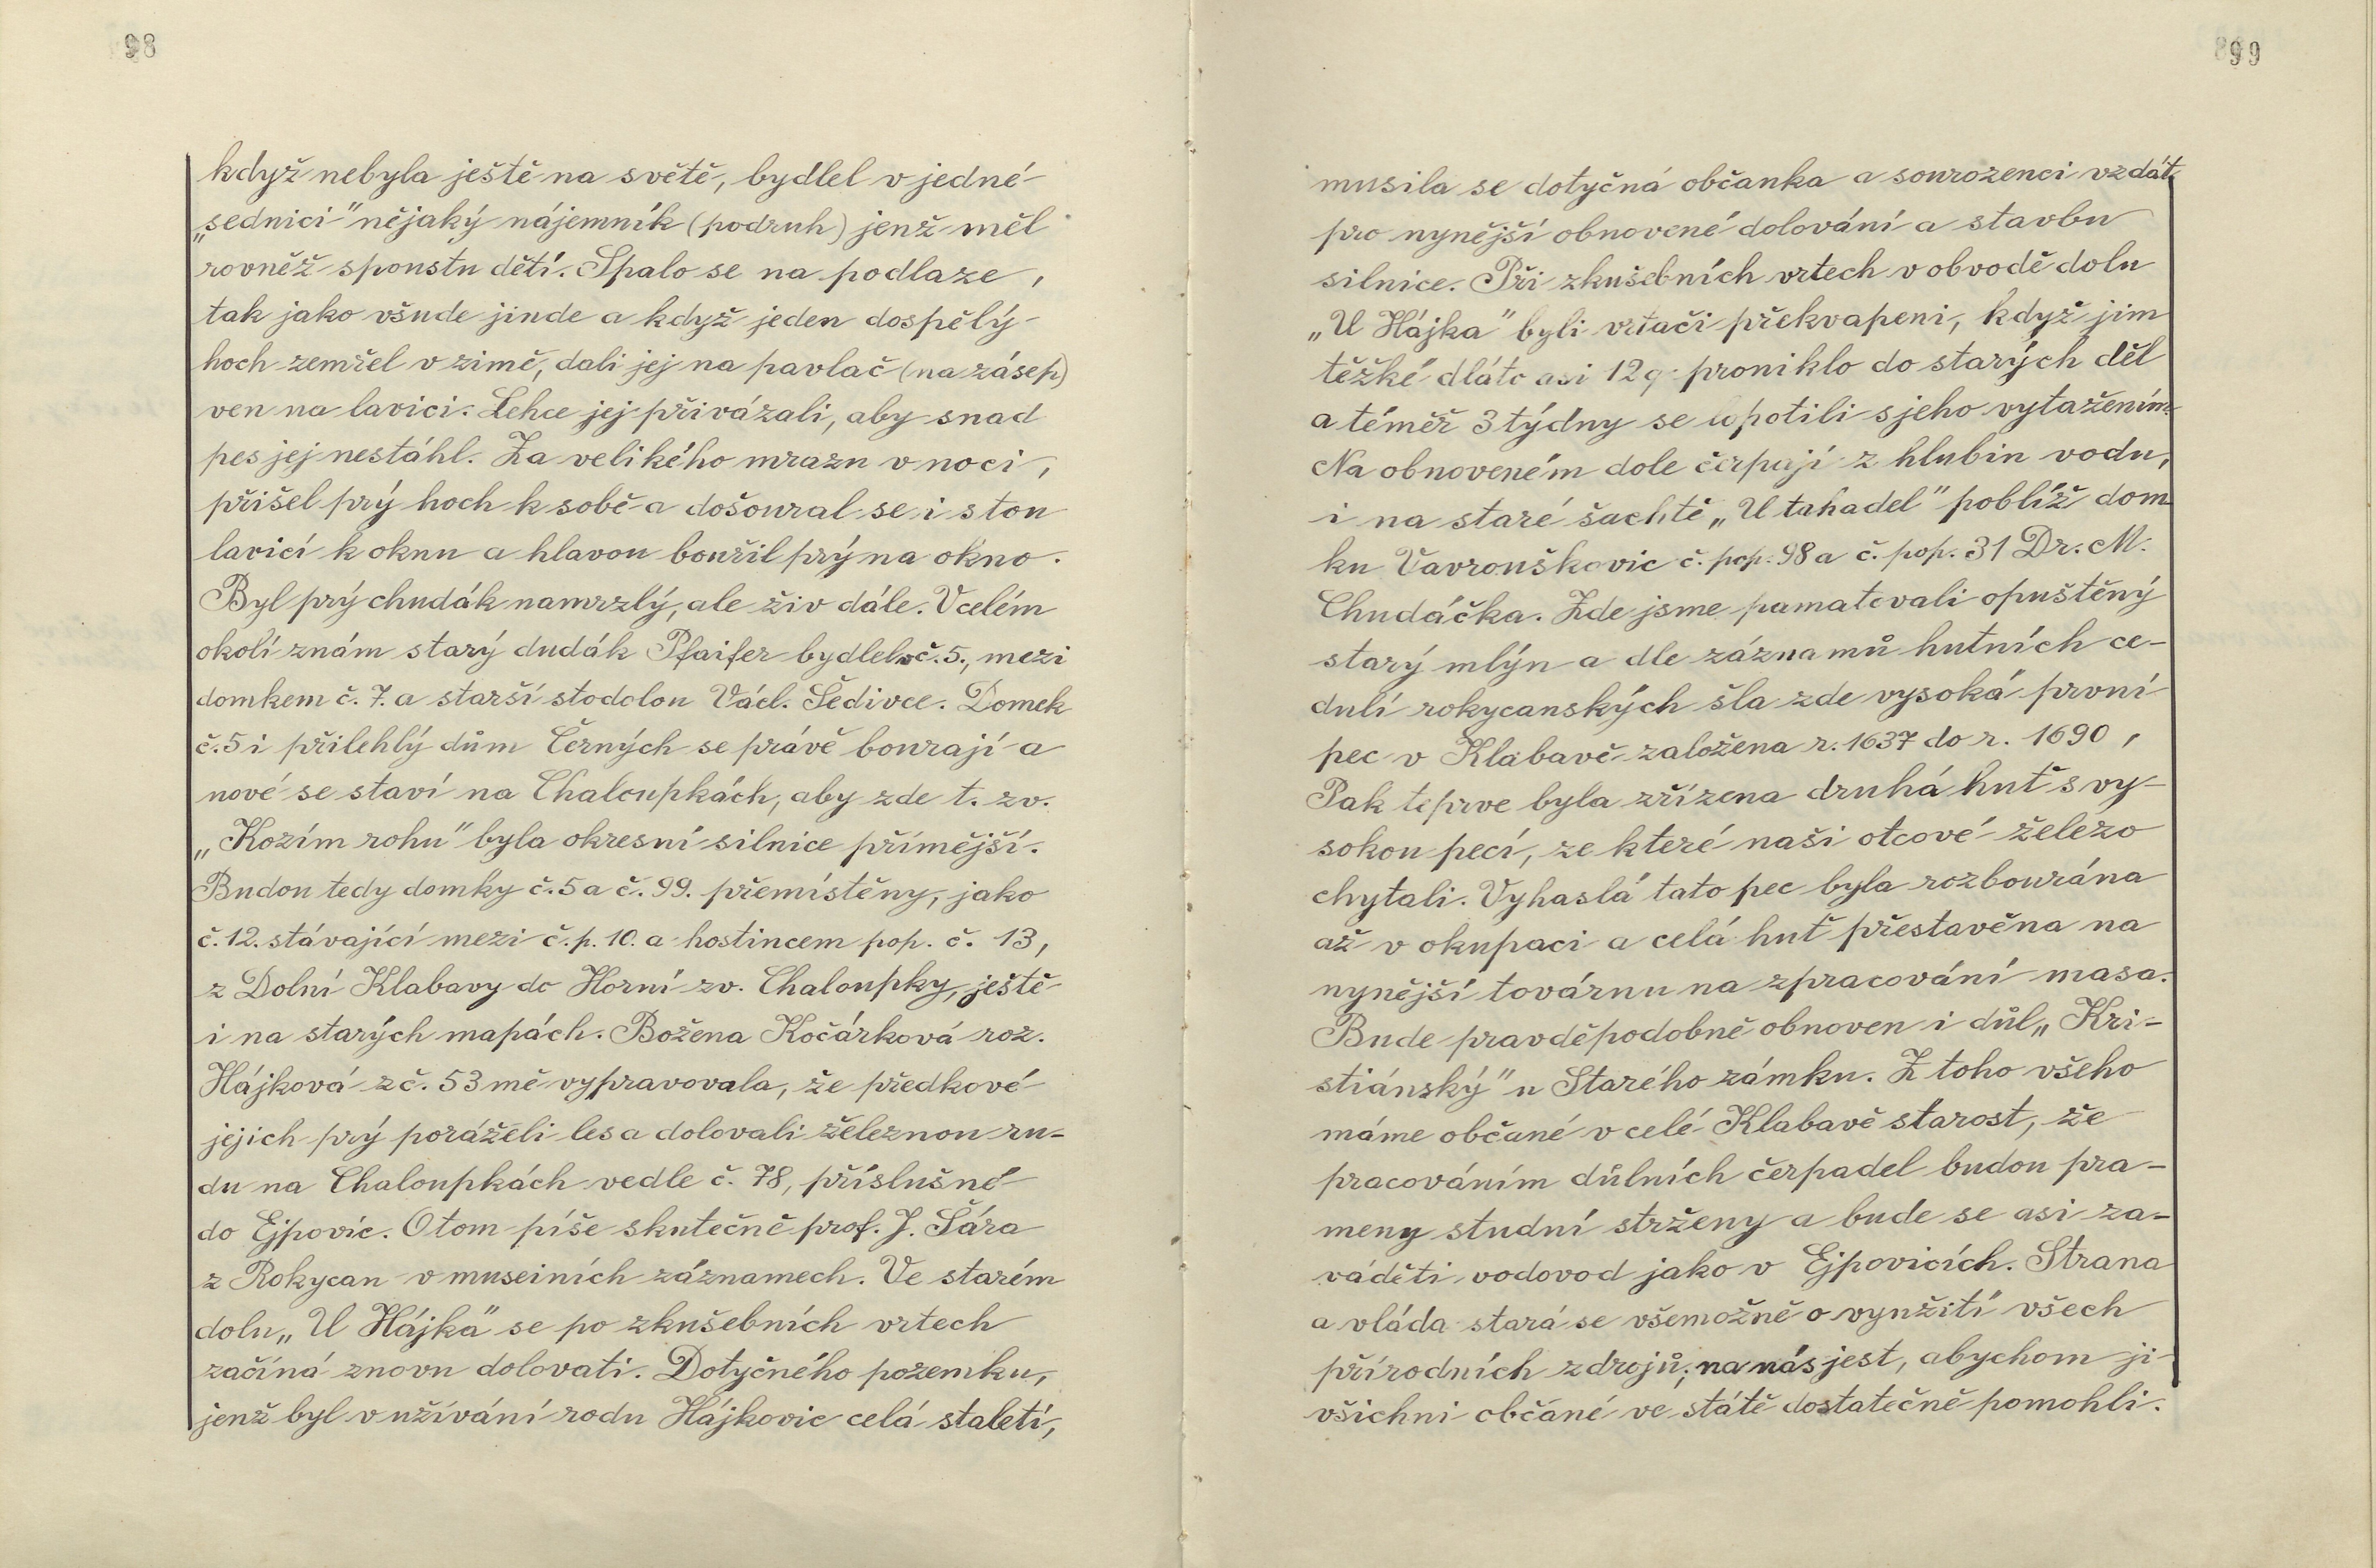 98
když nebyla ještě na světě, bydlel v jedné
„sednici" nějaký nájemník (podruh) jenž měl
rovněž spoustu dětí. Spalo se na podlaze,
tak jako všude jinde a když jeden dospělý
hoch zemřel v zimě, dali jej na pavlač (na zásep)
ven na lavici. Lehce jej přivázali, aby snad
pes jej nestáhl. Za velikého mrazu v noci,
přišel prý hoch k sobě a došoural se i s tou
lavicí k oknu a hlavou bouřil prý na okno.
Byl prý chudák namrzlý, ale živ dále. V celém
okolí znám starý dudák Pfaifer bydlel v č. 5., mezi
domkem č. 7. a starší stodolou Václ. Šedivce. Domek
č. 5 i přilehlý dům Černých se právě bourají a
nové se staví na Chaloupkách, aby zde t. zv.
„Kozím rohu" byla okresní silnice přímější.
Budou tedy domky č. 5 a č. 99. přemístěny, jako
č. 12. stávající mezi č. p. 10. a hostincem pop. č. 13,
z Dolní Klabavy do Horní zv. Chaloupky, ještě
i na starých mapách. Božena Kočárková roz.
Hájková z č. 53 mě vypravovala, že předkové
jejich prý poráželi les a dolovali železnou ru-
du na Chaloupkách vedle č. 78, příslušné
do Ejpovic. O tom píše skutečně prof. J. Šára
z Rokycan v museiních záznamech. Ve starém
dolu „U Hájka" se po zkušebních vrtech
začíná znovu dolovati. Dotyčného pozemku,
jenž byl v užívání rodu Hájkovic celá staletí,
99
musila se dotyčná občanka a sourozenci vzdát
pro nynější obnovené dolování a stavbu
silnice. Při zkušebních vrtech v obvodě dolu
„U Hájka" byli vrtači překvapeni, když jim
těžké dláto asi 12 q proniklo do starých děl
a téměř 3 týdny se lopotili s jeho vytažením.
Na obnoveném dole čerpají z hlubin vodu,
i na staré šachtě „U tahadel" poblíž dom-
ku Vavrouškovic č. pop. 98 a č. pop. 31 Dr. M.
Chudáčka. Zde jsme pamatovali opuštěný
starý mlýn a dle záznamů hutních ce-
dulí rokycanských šla zde vysoká první
pec v Klabavě založena r. 1637 do r. 1690,
Pak teprve byla zřízena druhá huť s vy-
sokou pecí, ze které naši otcové železo
chytali. Vyhaslá tato pec byla rozbourána
až v okupaci a celá huť přestavěna na
nynější továrnu na zpracování masa.
Bude pravděpodobně obnoven i důl „Kri-
stiánský" u Starého zámku. Z toho všeho
máme občané v celé Klabavě starost, že
pracováním důlních čerpadel budou pra-
meny studní strženy a bude se asi za-
váděti vodovod jako v Ejpovicích. Strana
a vláda stará se všemožně o využití všech
přírodních zdrojů; na nás jest, abychom ji
všichni občané ve státě dostatečně pomohli.